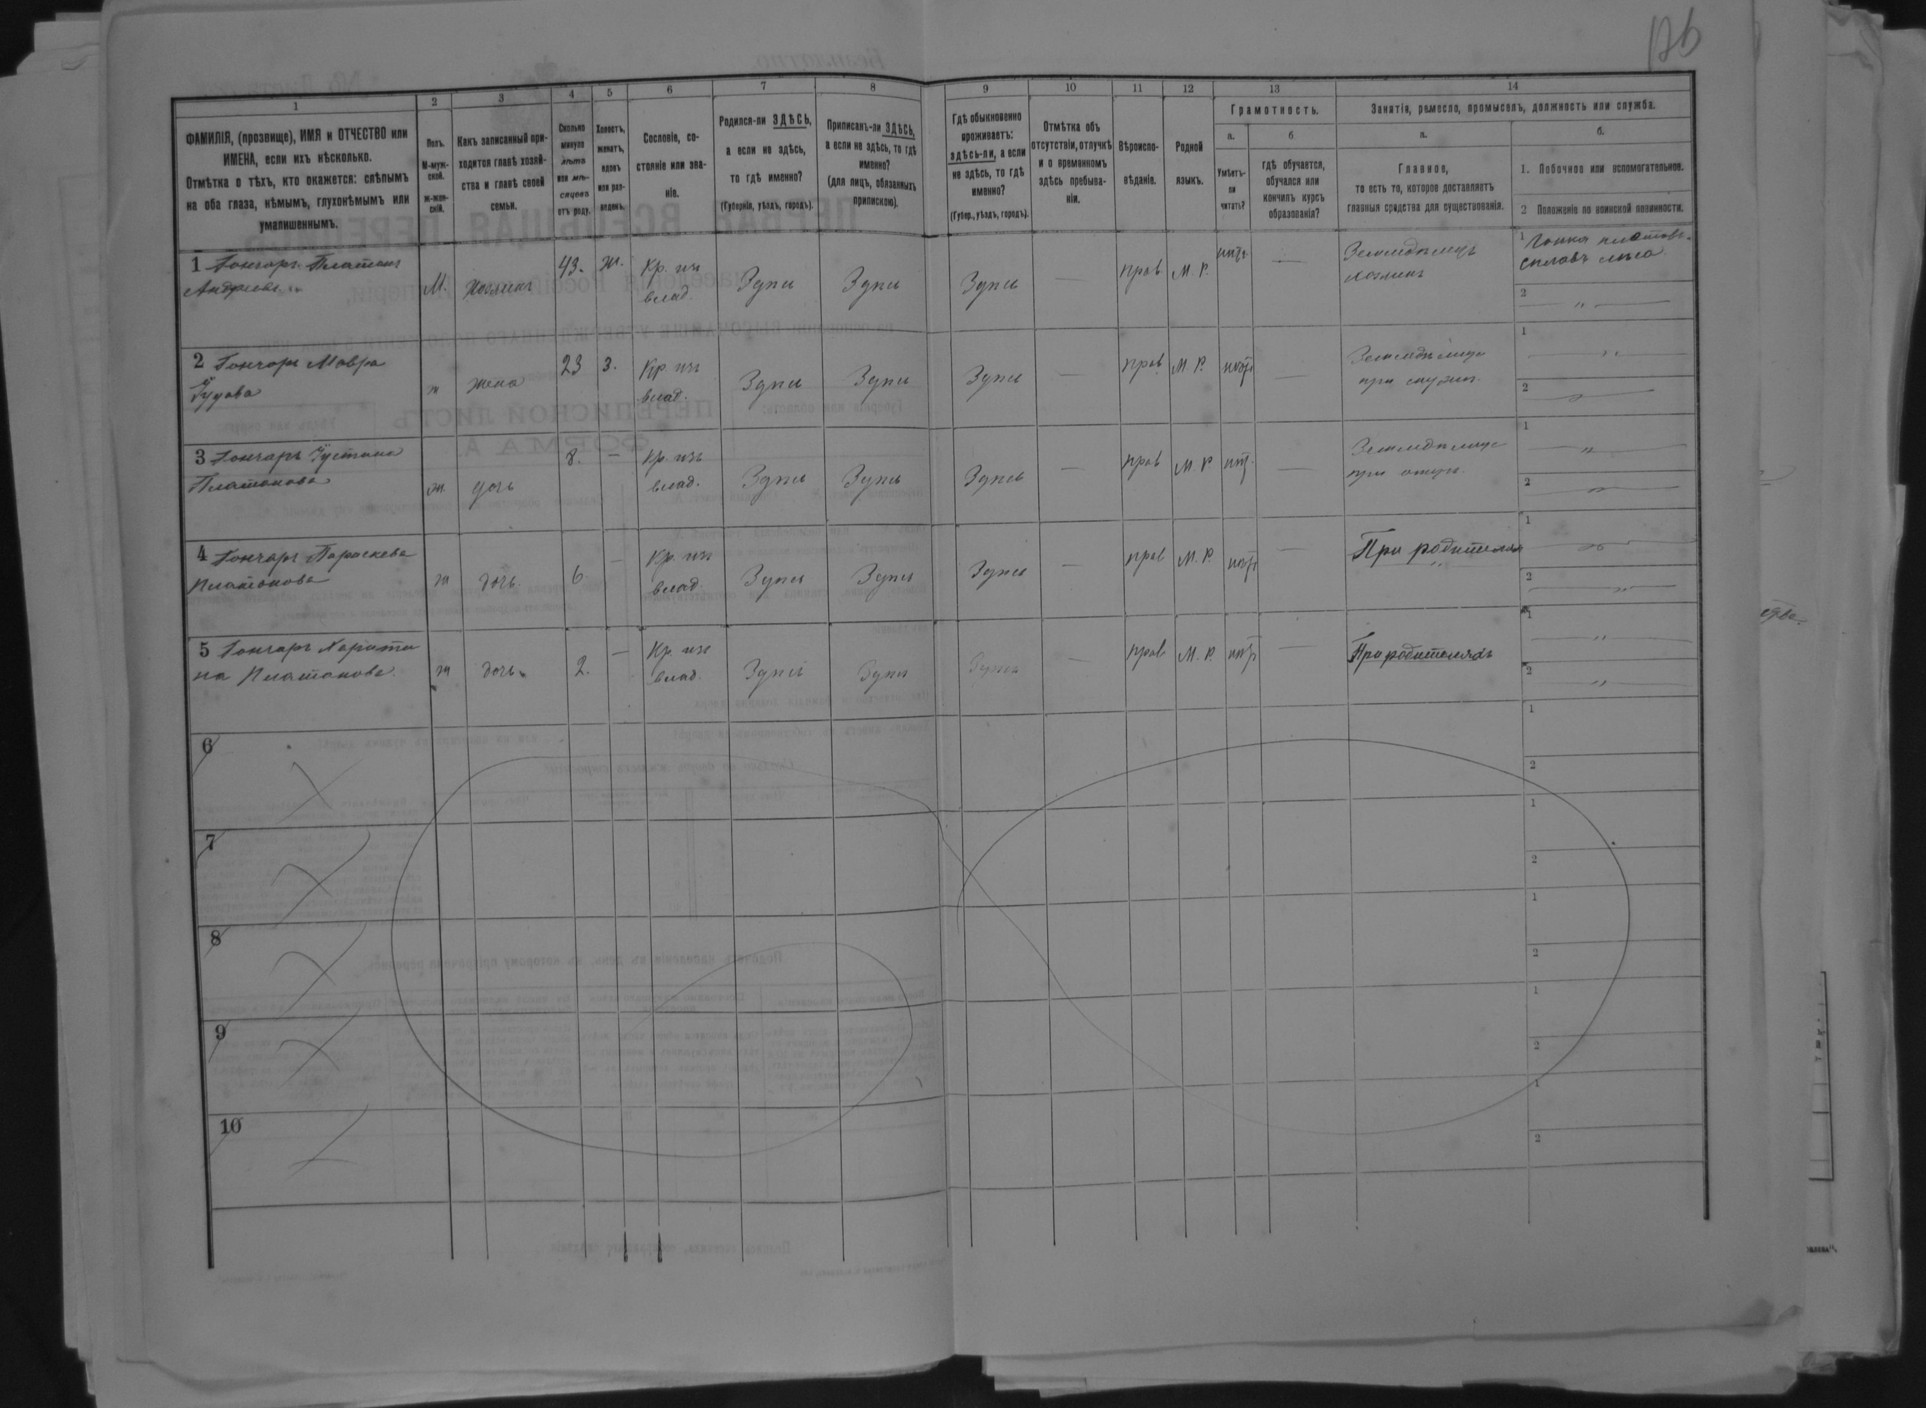 126
1
2
3
4
5
6
7
8
9
10
11
12
13
14
ФАМИЛІЯ, (прозвище), ИМЯ и ОТЧЕСТВО или
ИМЕНА, если ихъ нѣсколько.
Отмѣтка о тѣхъ, кто окажется: слѣпымъ
на оба глаза, нѣмымъ, глухонѣмымъ или
умалишеннымъ.
Полъ.
М-муж-
ской.
ж-жен-
скій.
Какъ записанный при-
ходится главѣ хозяй-
ства и главѣ своей
семьи.
Сколько
минуло
лѣтъ
или мѣ-
сяцевъ
отъ роду.
Холостъ,
женатъ,
вдовъ
или раз-
веденъ.
Сословіе, со-
стояніе или зва-
ніе.
Родился-ли ЗДѢСЬ,
а если не здѣсь,
то гдѣ именно?
(Губернія, уѣздъ, городъ).
Приписанъ-ли ЗДѢСЬ,
а если не здѣсь, то гдѣ
именно?
(для лицъ, обязанныхъ
припискою).
Гдѣ обыкновенно
проживаетъ:
здѣсь-ли, а если
не здѣсь, то гдѣ
именно?
(Губер., уѣздъ, городъ).
Отмѣтка объ
отсутствіи, отлучкѣ
и о временномъ
здѣсь пребыва-
ніи.
Вѣроиспо-
вѣданіе.
Родной
языкъ.
Грамотность.
а.
б.
Умѣетъ-
ли
читать?
гдѣ обучается,
обучался или
кончилъ курсъ
образованія?
Занятія, ремесло, промыселъ, должность или служба.
а.
б.
Главное,
то есть то, которое доставляетъ
главныя средства для существованія.
1. Побочное или вспомогательное.
2 Положеніе по воинской повинности.
1 Гончаръ Платонъ
Андреевъ
М. хозяинъ 43. ж. Кр. изъ
влад. Здѣсь Здѣсь Здѣсь — прав М. Р. —
Земледѣлецъ
хозяинъ
1
сплавъ лѣса
2 — „ —
2 Гончаръ Мавра
ж жена 23 з. Кр изъ
влад. Здѣсь Здѣсь Здѣсь — прав М Р —
1 — „ —
2 — „ —
3 Гончаръ Устина
Платонова
ж. дочь 8. — Кр. изъ
влад. Здѣсь Здѣсь Здѣсь — прав М Р —
1 — „ —
2 — „ —
4 Гончаръ Параскева
Платонова
ж дочь. 6 — Кр. изъ
влад. Здѣсь Здѣсь Здѣсь — прав М. Р. —
При родителяхъ
1 — „ —
2 — „ —
5 Гончаръ Харити
на Платонова.
ж дочь. 2. — Кр изъ
влад. Здѣсь Здѣсь Здѣсь — прав М. Р. —
При родителяхъ
1 — „ —
2 — „ —
6
1
2
7
1
2
8
1
2
9
1
2
10
1
2